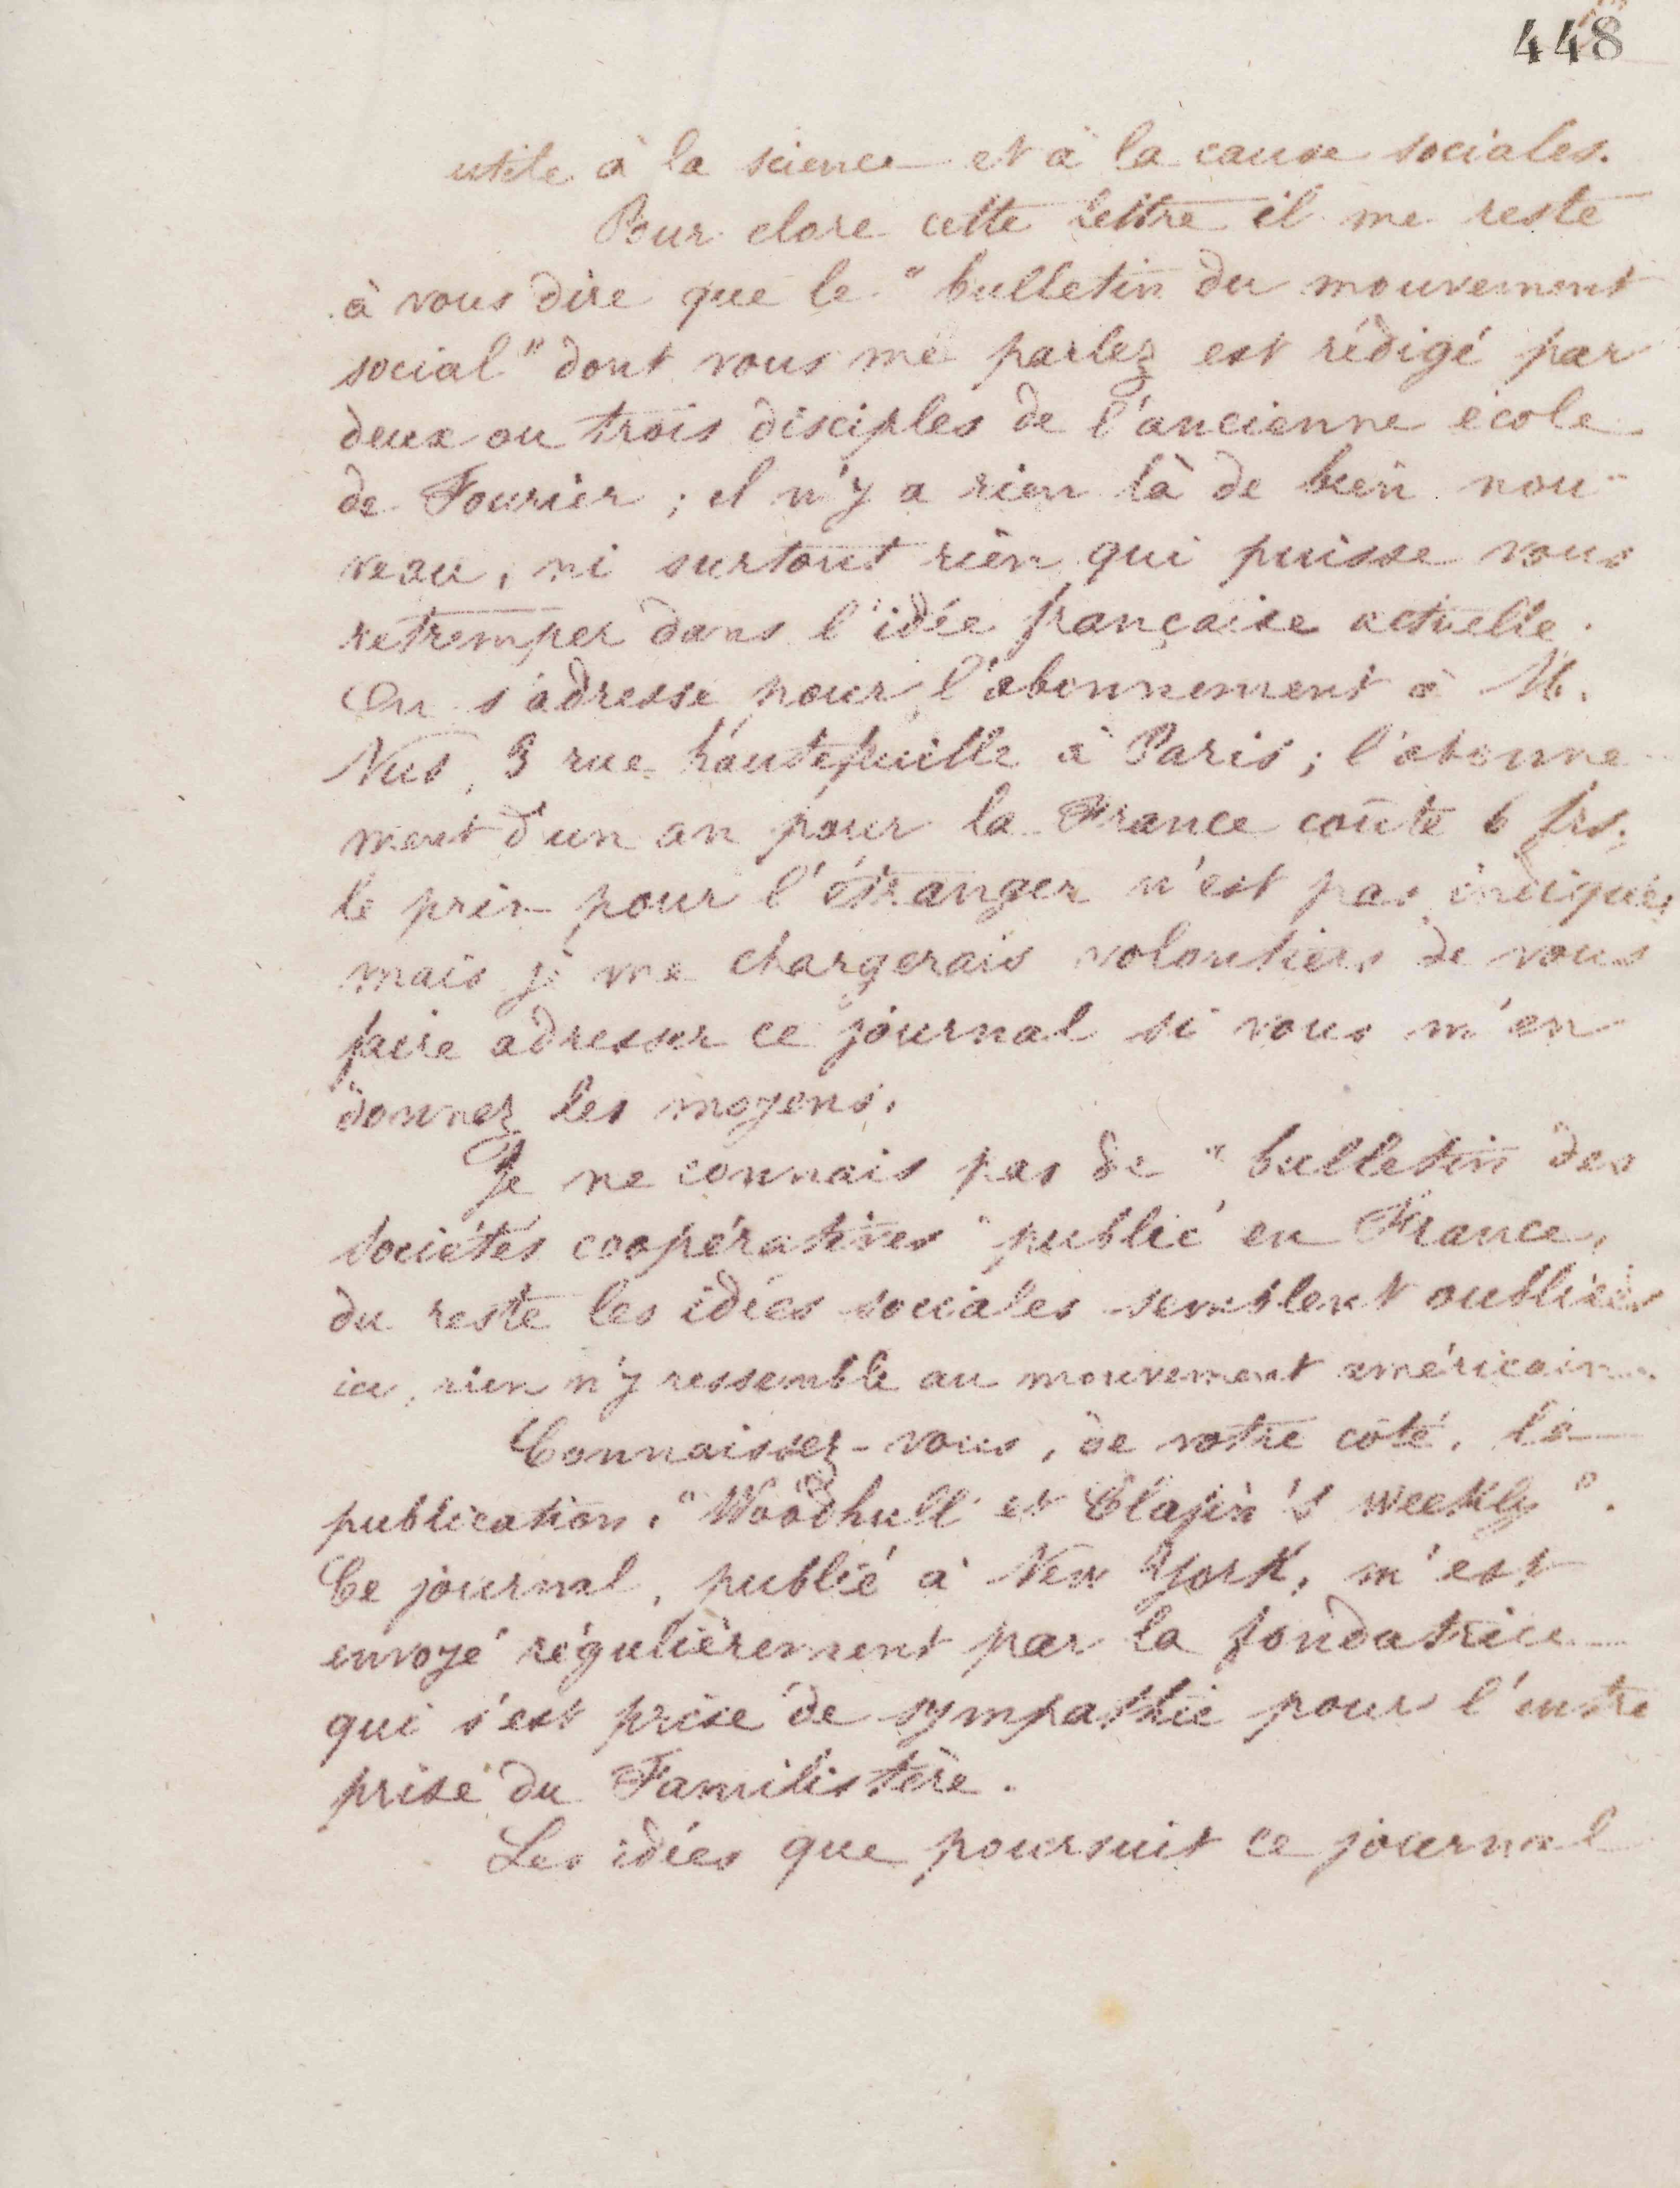 448
utile à la science et à la cause sociales.
Pour clore cette lettre il me reste
à vous dire que le "bulletin du mouvement
social" dont vous me parlez est rédigé par
deux ou trois disciples de l'ancienne école
de Fourier ; il n'y a rien là de bien nou-
veau, ni surtout rien qui puisse vous
retremper dans l'idée française actuelle.
On s'adresse pour l'abonnement à M.
Nus, 3 rue hautefeuille à Paris ; l'abonne-
ment d'un an pour la France coûte 6 frs,
le prix pour l'étranger n'est pas indiqué,
mais je me chargerais volontiers de vous
faire adresser ce journal si vous m'en
donnez les moyens.
Je ne connais pas de "bulletin des
sociétés coopératives" publié en France,
du reste les idées sociales semblent oubliées
ici, rien n'y ressemble au mouvement américain.
Connaissez-vous, de votre côté, la
publication, "Woodhull et Claflin's weekly".
Ce journal, publié à New York, m'est
envoyé régulièrement par la fondatrice
qui s'est prise de sympathie pour l'entre
prise du Familistère.
Les idées que poursuit ce journal